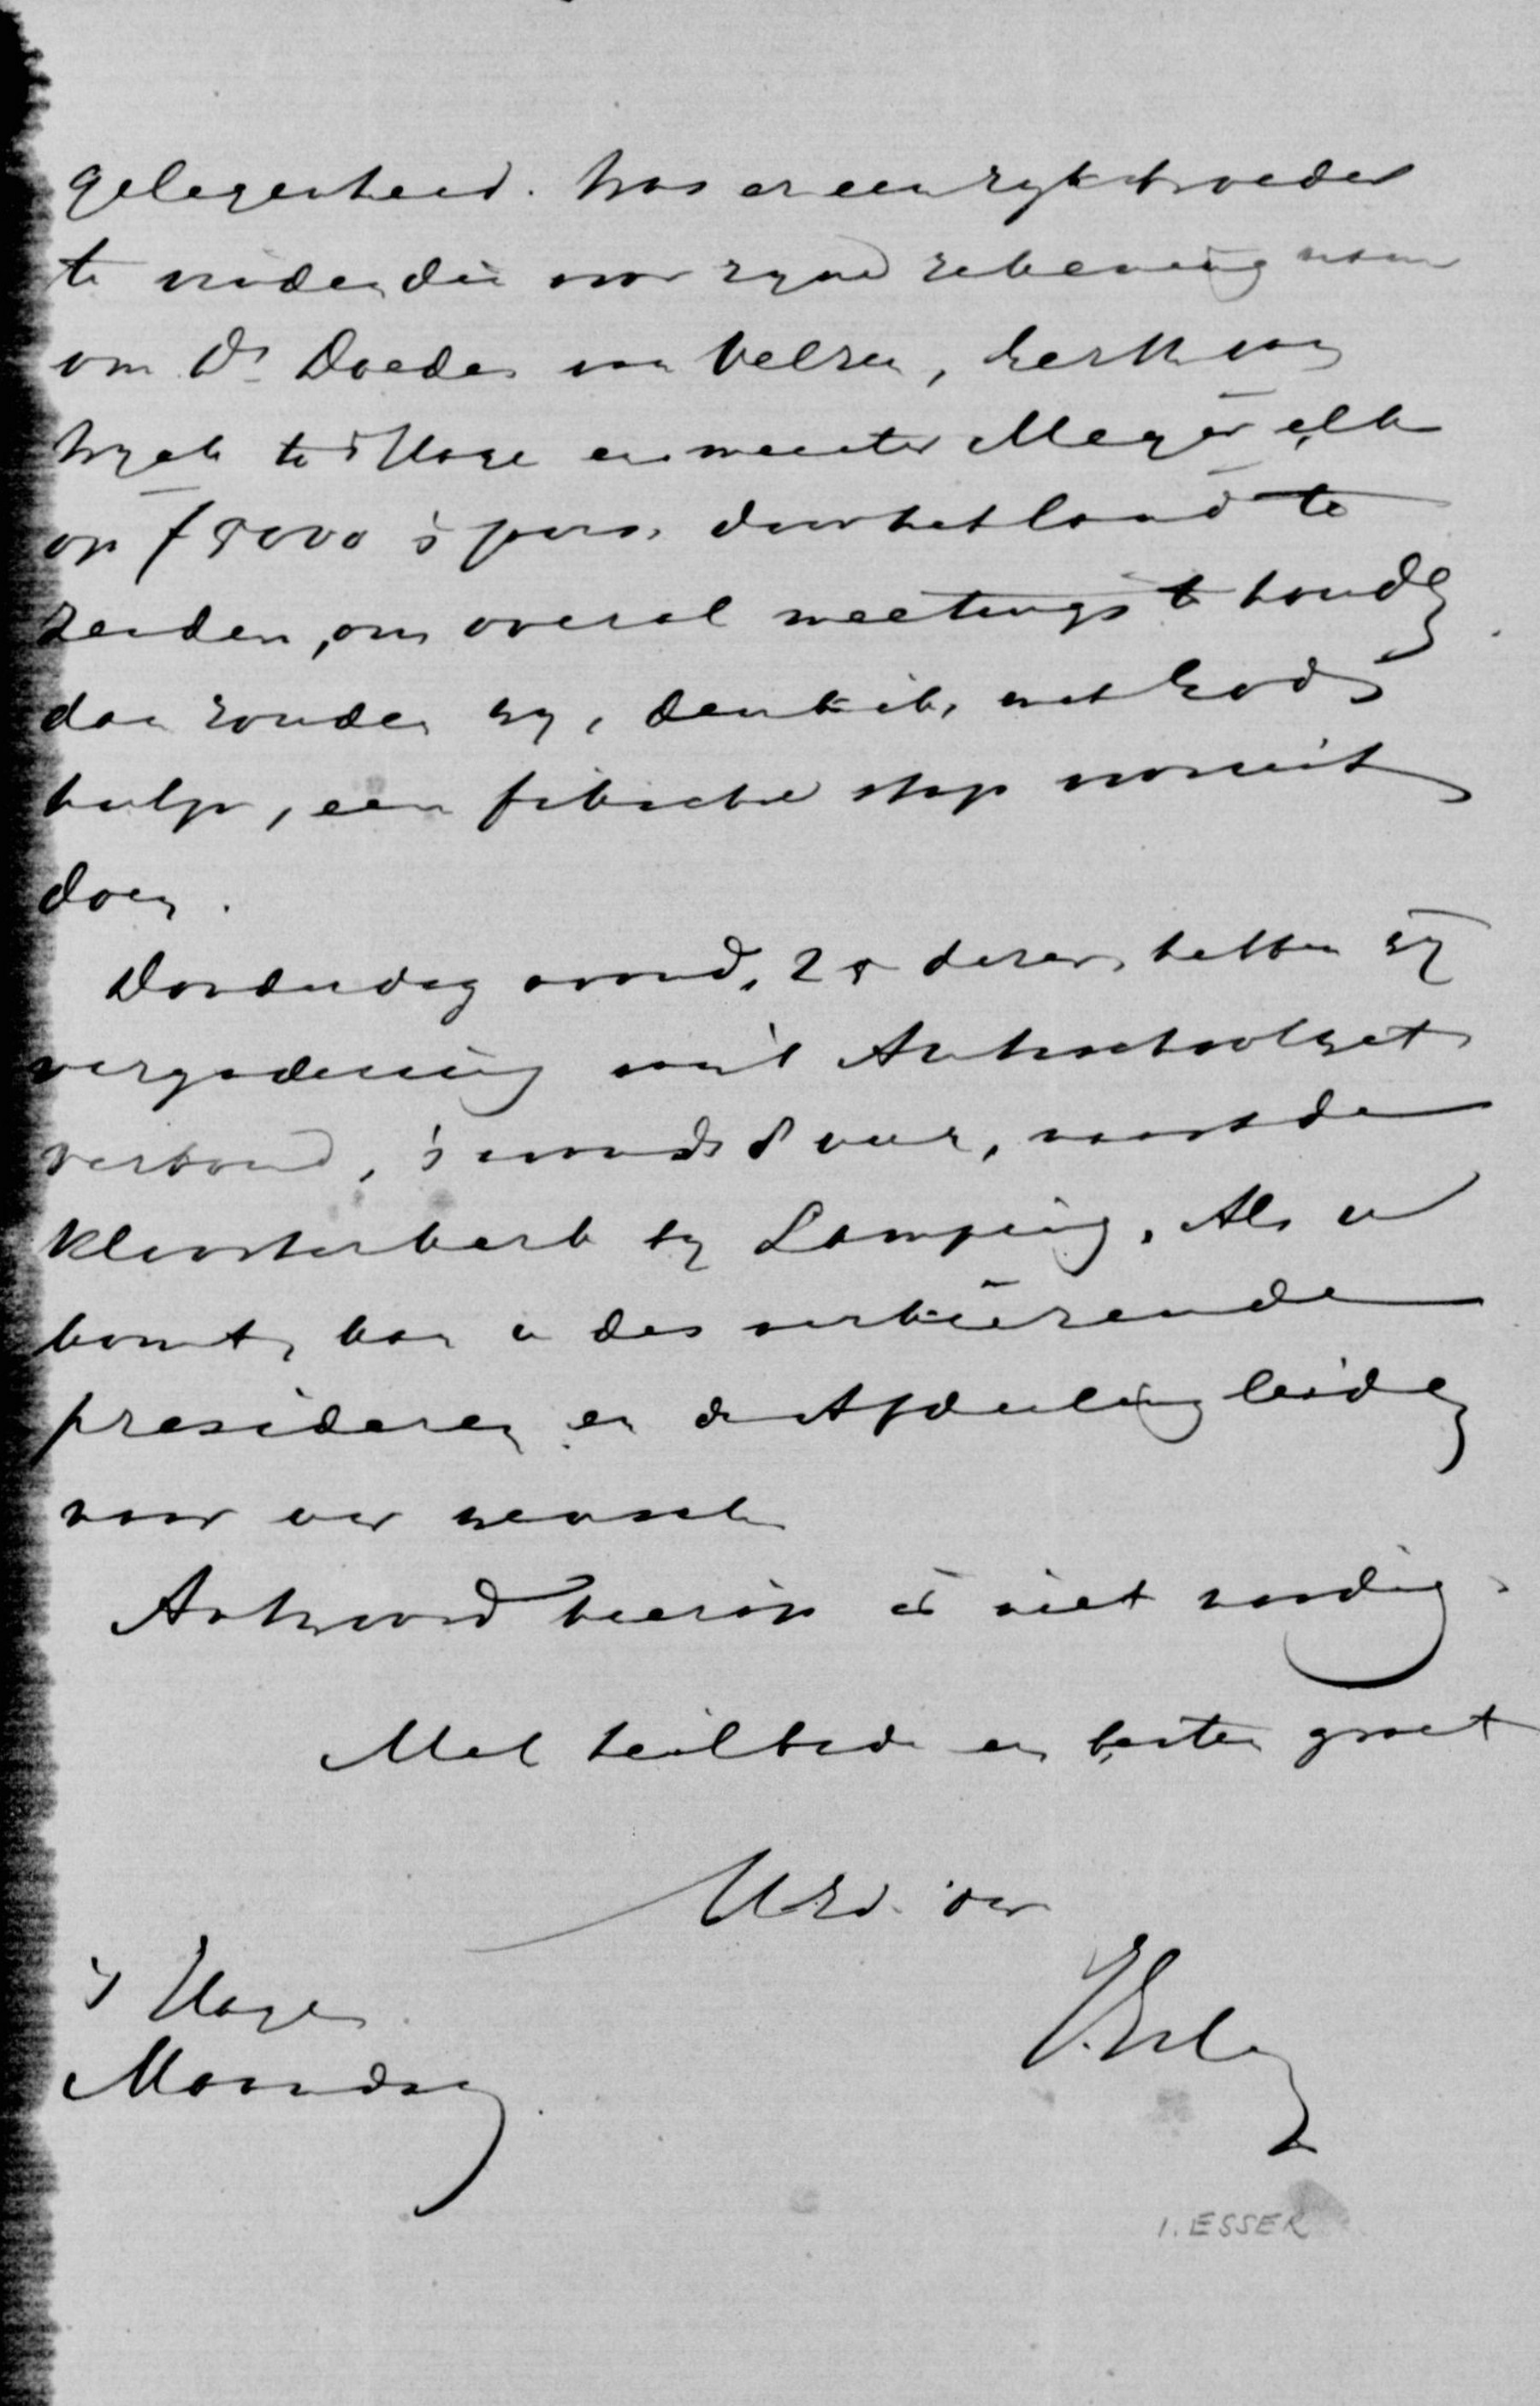 gelegenheid. Was er een ryk broeder
te vinden die voor zyne rekening nam
om Ds Doedes van Velsen, Gerth van
Wyck te 's Hage en meester Meyer elk
op f 5000 's jaars, door het land te
zenden, om overal meetings te houden
dan zouden wy, denk ik, met Gods
hulp, een fiksche stap vooruit
doen.
Donderdag avond, 28 dezer, hebben wy
vergadering van 't Antischoolwet
verbond, 's avonds 8 uur, naast de
Kloosterkerk by Lamping. Als u
komt, kan u des verkiezende
presideren en de Afdeeling leiden
naar uw wensch
Antwoord hierop is niet noodig.
Met heilbede en besten groet
UEd. dw
's Hage
Maandag.
I. Esser
I. ESSER